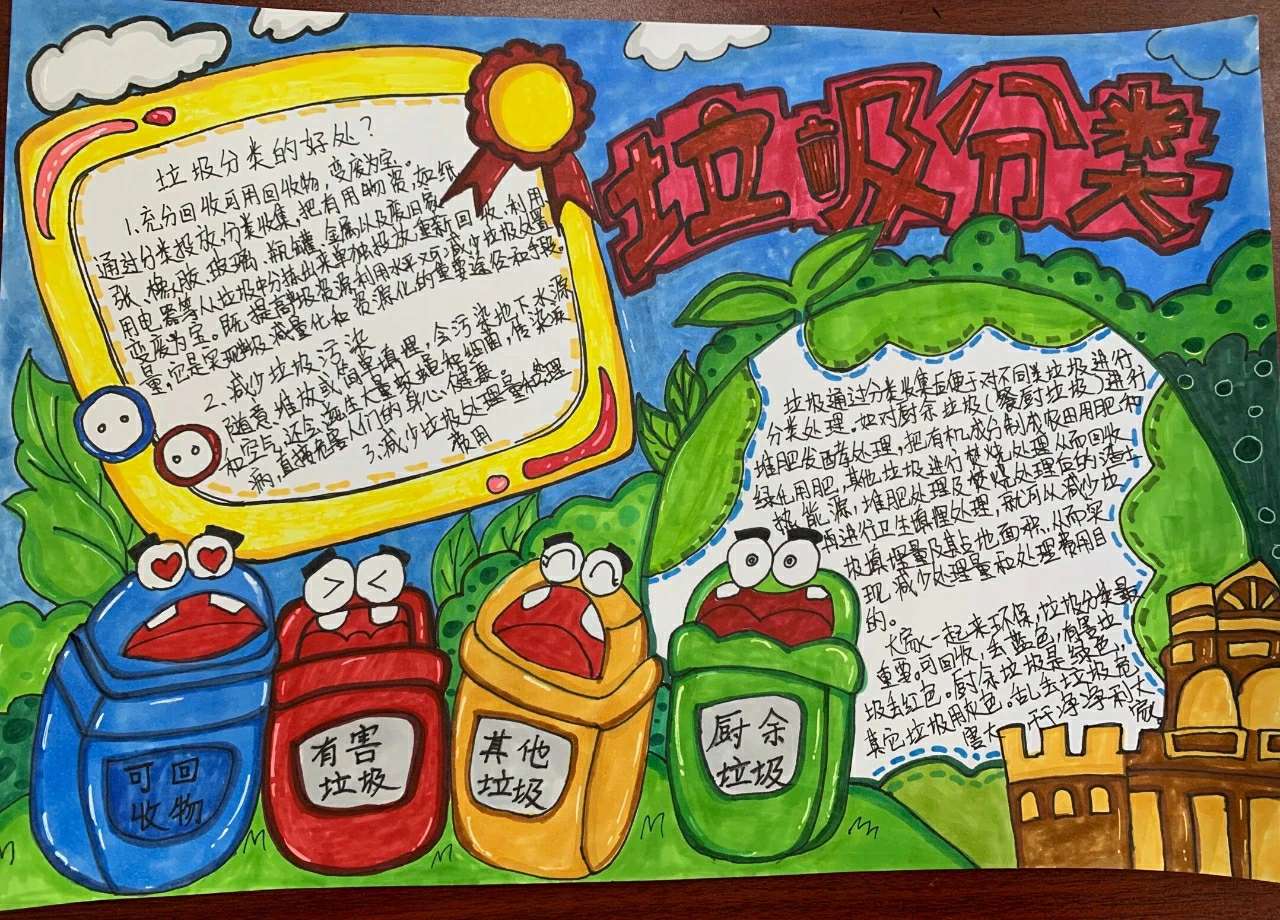 垃圾分类
垃圾分类的好处？
1.充分回收可用回收物，变废为宝。
通过分类投放，分类收集，把有用物资，如纸
张、塑胶、玻璃、瓶罐、金属以及废旧家
用电器等从垃圾中分拣出来单独投放，重新回收、利用，
变废为宝。既提高垃圾资源利用水平又可减少垃圾处置
量，它是实现垃圾减量化和资源化的重要途径和手段。
2.减少垃圾污染
随意堆放或简单填埋，会污染地下水源
和空气，还会滋生大量蚊蝇和细菌，传染疾
病，直接危害人们的身心健康。
3.减少垃圾处理量和处理
费用
垃圾通过分类收集后便于对不同类垃圾进行
分类处理。如对厨余垃圾（餐厨垃圾）进行
堆肥发酵处理，把有机成分制成农田用肥和
绿化用肥，其他垃圾进行焚烧处理从而回收
热能源，堆肥处理及焚烧处理后的渣土
再进行卫生填埋处理，就可以减少垃
圾填埋量及其占地面积，从而实
现减少处理量和处理费用目
的。
大家一起来环保，垃圾分类最
重要。可回收，丢蓝色，有害垃
圾丢红色。厨余垃圾是绿色，
其它垃圾用灰色。乱丢垃圾危
害大，干干净净利大家
可回
收物
有害
垃圾
其他
垃圾
厨余
垃圾